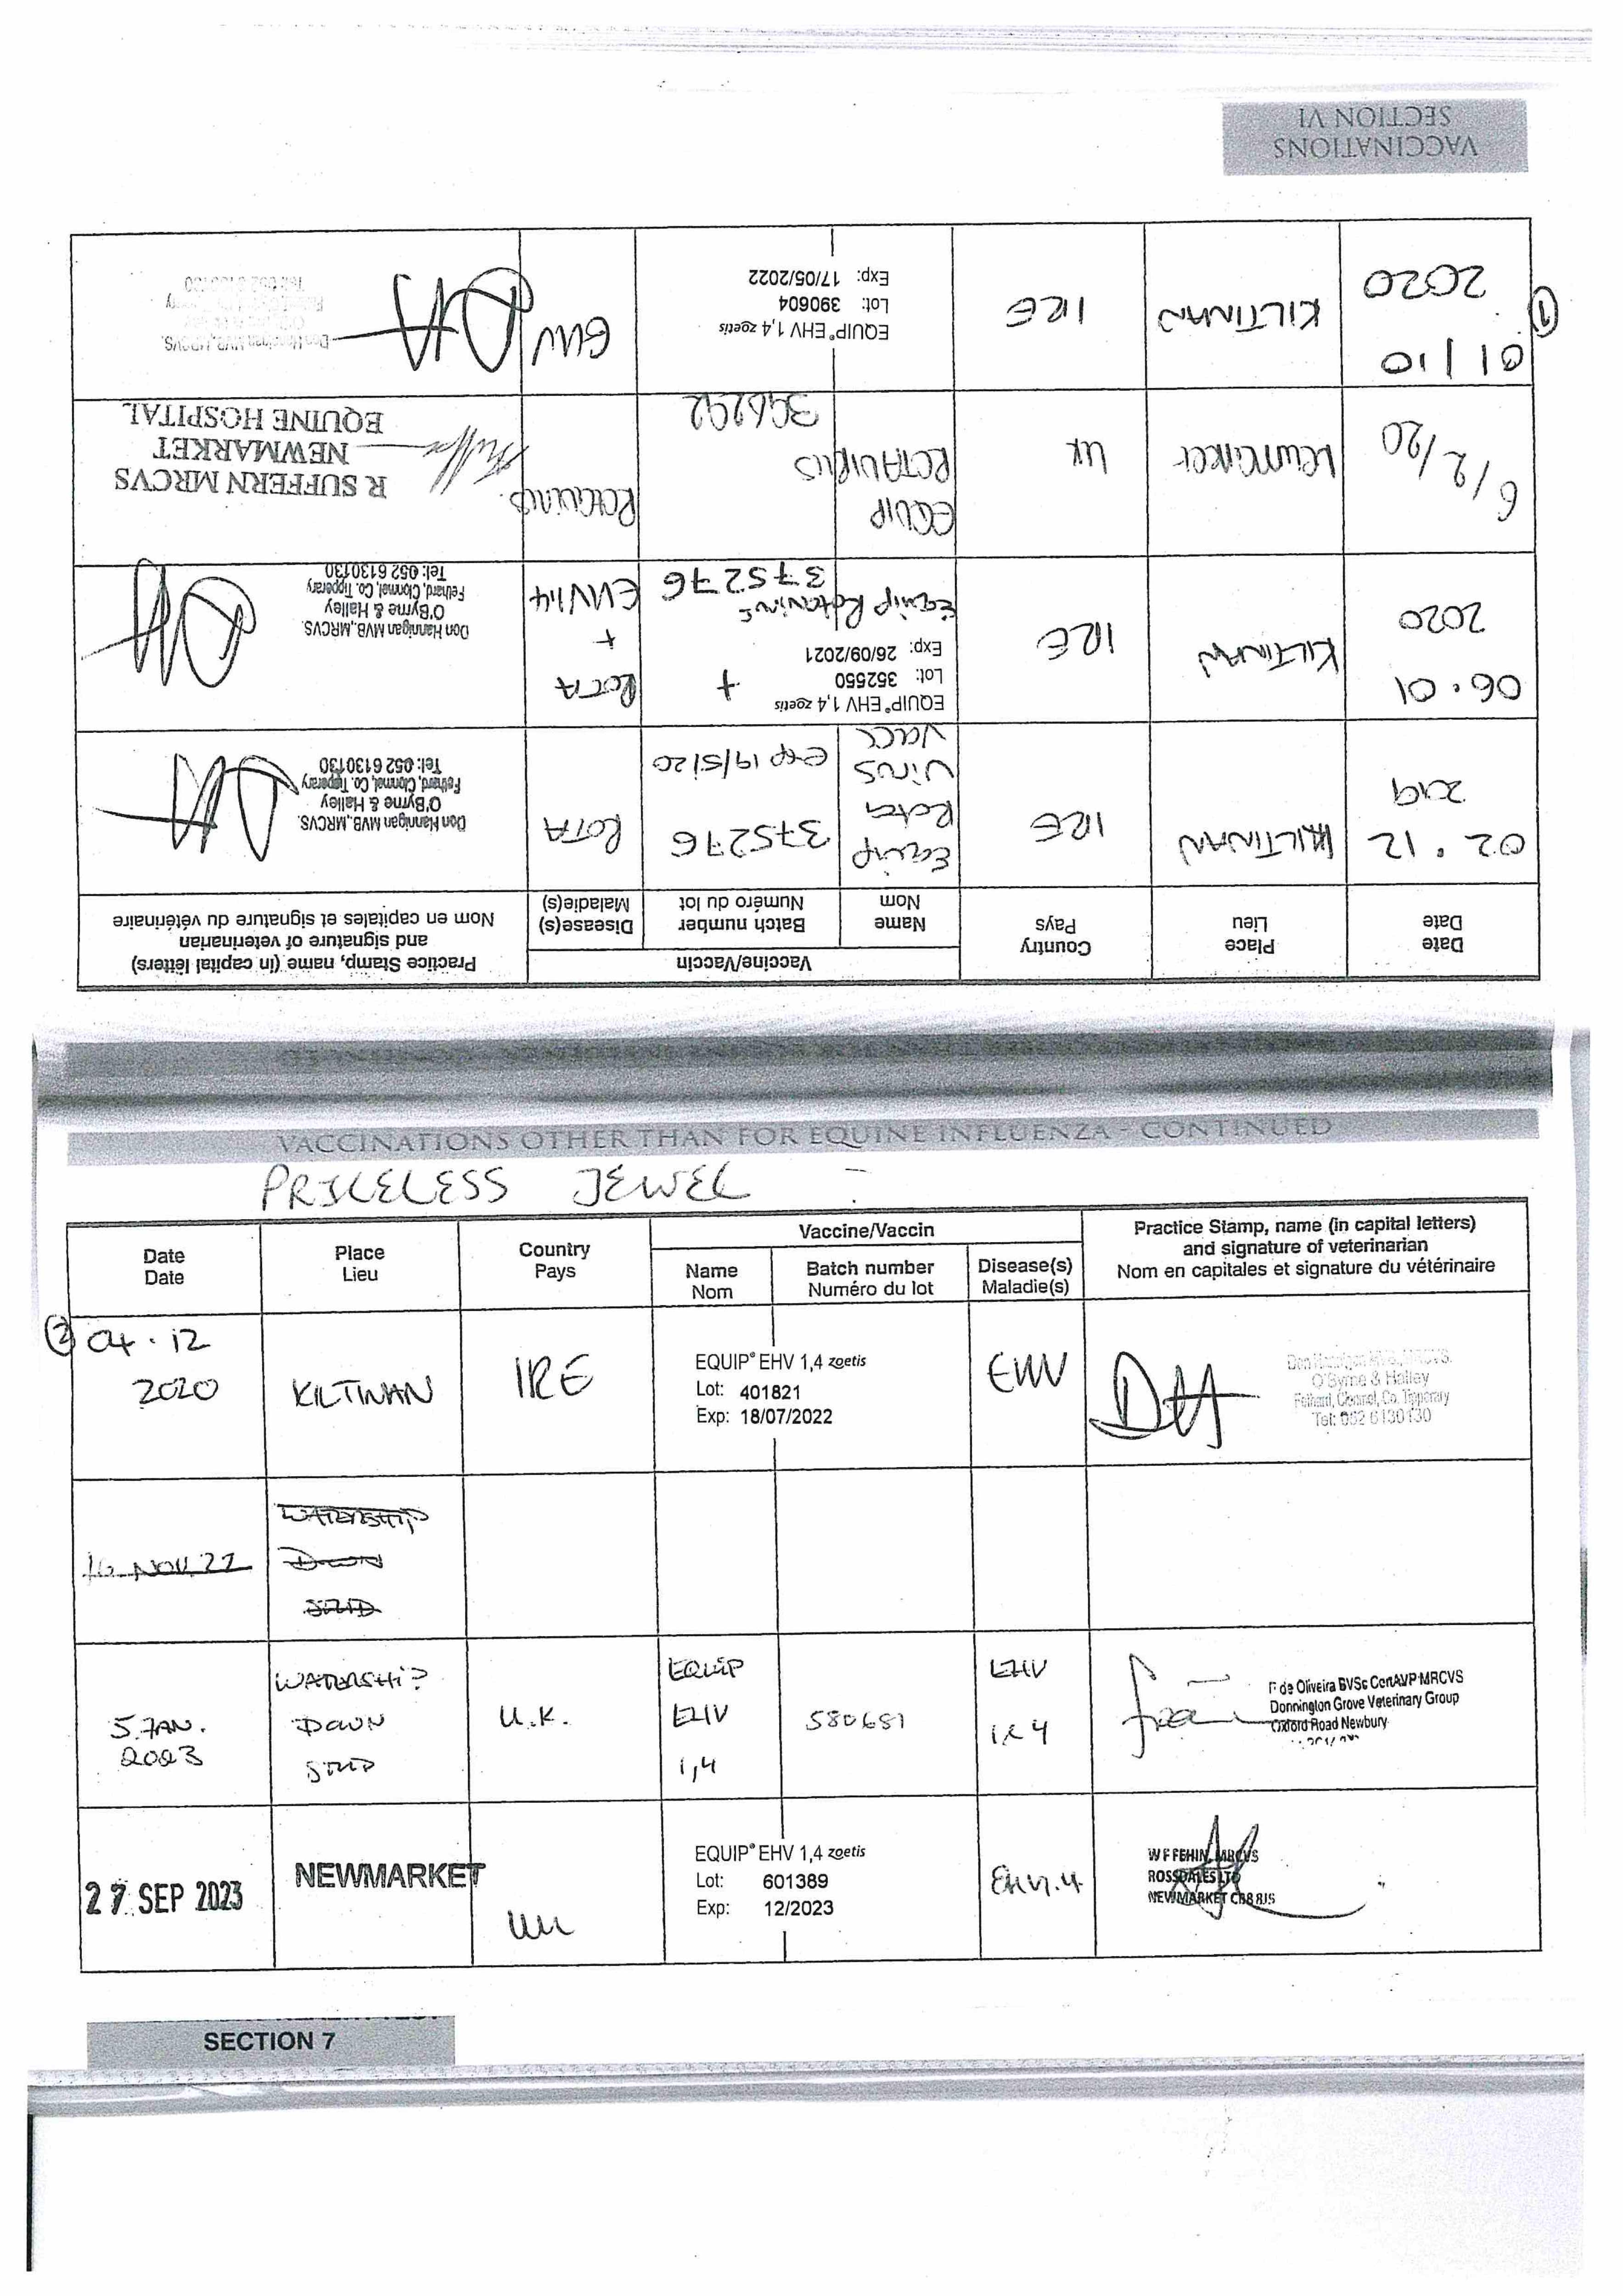 VACCINATIONS
SECTION VI
Date
Date
Place
Lieu
Country
Pays
Vaccine/Vaccin
Name
Nom
Batch number
Numéro du lot
Disease(s)
Maladie(s)
Practice Stamp, name (in capital letters)
and signature of veterinarian
Nom en capitales et signature du vétérinaire
02.12
2019
KILTINAN
IRE
Equip
Rota
Virus
Vacc
375276
exp 19/5/20
ROTA
Don Hannigan MVB., MRCVS.
O'Byrne & Halley
Fethard, Clonmel, Co. Tipperary
Tel: 052 6130130
06.01
2020
KILTINAN
IRE
EQUIP® EHV 1,4 zoetis
Lot: 352550
Exp: 26/09/2021
+
Equip Rotavirus
375276
ROTA
+
EHV1.4
Don Hannigan MVB., MRCVS.
O'Byrne & Halley
Fethard, Clonmel, Co. Tipperary
Tel: 052 6130130
6/2/20
Newmarket
UK
EQUIP
ROTAVIRUS
396292
Rotavirus
R SUFFERN MRCVS
NEWMARKET
EQUINE HOSPITAL
①
01/10
2020
KILTINAN
IRE
EQUIP® EHV 1,4 zoetis
Lot: 390604
Exp: 17/05/2022
EHV
Don Hannigan MVB., MRCVS.
VACCINATIONS OTHER THAN FOR EQUINE INFLUENZA - CONTINUED
PRICELESS JEWEL
Date
Date
Place
Lieu
Country
Pays
Vaccine/Vaccin
Name
Nom
Batch number
Numéro du lot
Disease(s)
Maladie(s)
Practice Stamp, name (in capital letters)
and signature of veterinarian
Nom en capitales et signature du vétérinaire
② 04.12
2020
KILTINAN
IRE
EQUIP® EHV 1,4 zoetis
Lot: 401821
Exp: 18/07/2022
EHV
DH
Don Hannigan MVB., MRCVS.
O'Byrne & Halley
Fethard, Clonmel, Co. Tipperary
Tel: 052 6130130
16 NOV. 22
WATERSHIP
DOWN
STUD
5. JAN.
2023
WATERSHIP
DOWN
STUD
U.K.
EQUIP
EHV
1,4
580681
EHV
1 & 4
F de Oliveira BVSc CertAVP MRCVS
Donnington Grove Veterinary Group
Oxford Road Newbury
27 SEP 2023
NEWMARKET
UK
EQUIP® EHV 1,4 zoetis
Lot: 601389
Exp: 12/2023
EHV1.4
W F FEHIN, MRCVS
ROSSDALES LTD
NEWMARKET CB8 8JS
SECTION 7